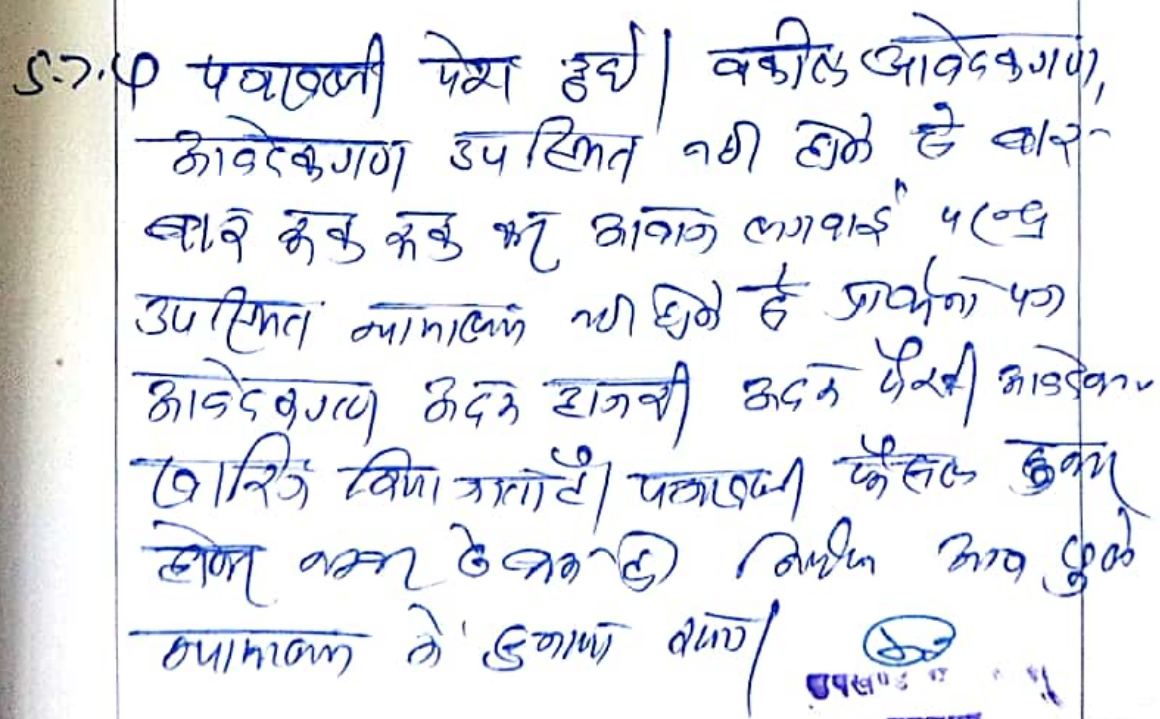 5.7.4 पत्रावली पेश हुई। वकील आवेदकगण,
आवेदकगण उपस्थित नही होते है बार-
बार रूक रूक कर आवाज लगवाई परन्तु
उपस्थित न्यायालय नही होते है प्रार्थना पत्र
आवेदकगण अदम हाजरी अदम पैरवी आवेदकगण
खारिज किया जाता है। पत्रावली फैसल शुमार
होकर नम्बर से कम हो निर्णय आज खुले
न्यायालय मे सुनाया गया।
उपखण्ड